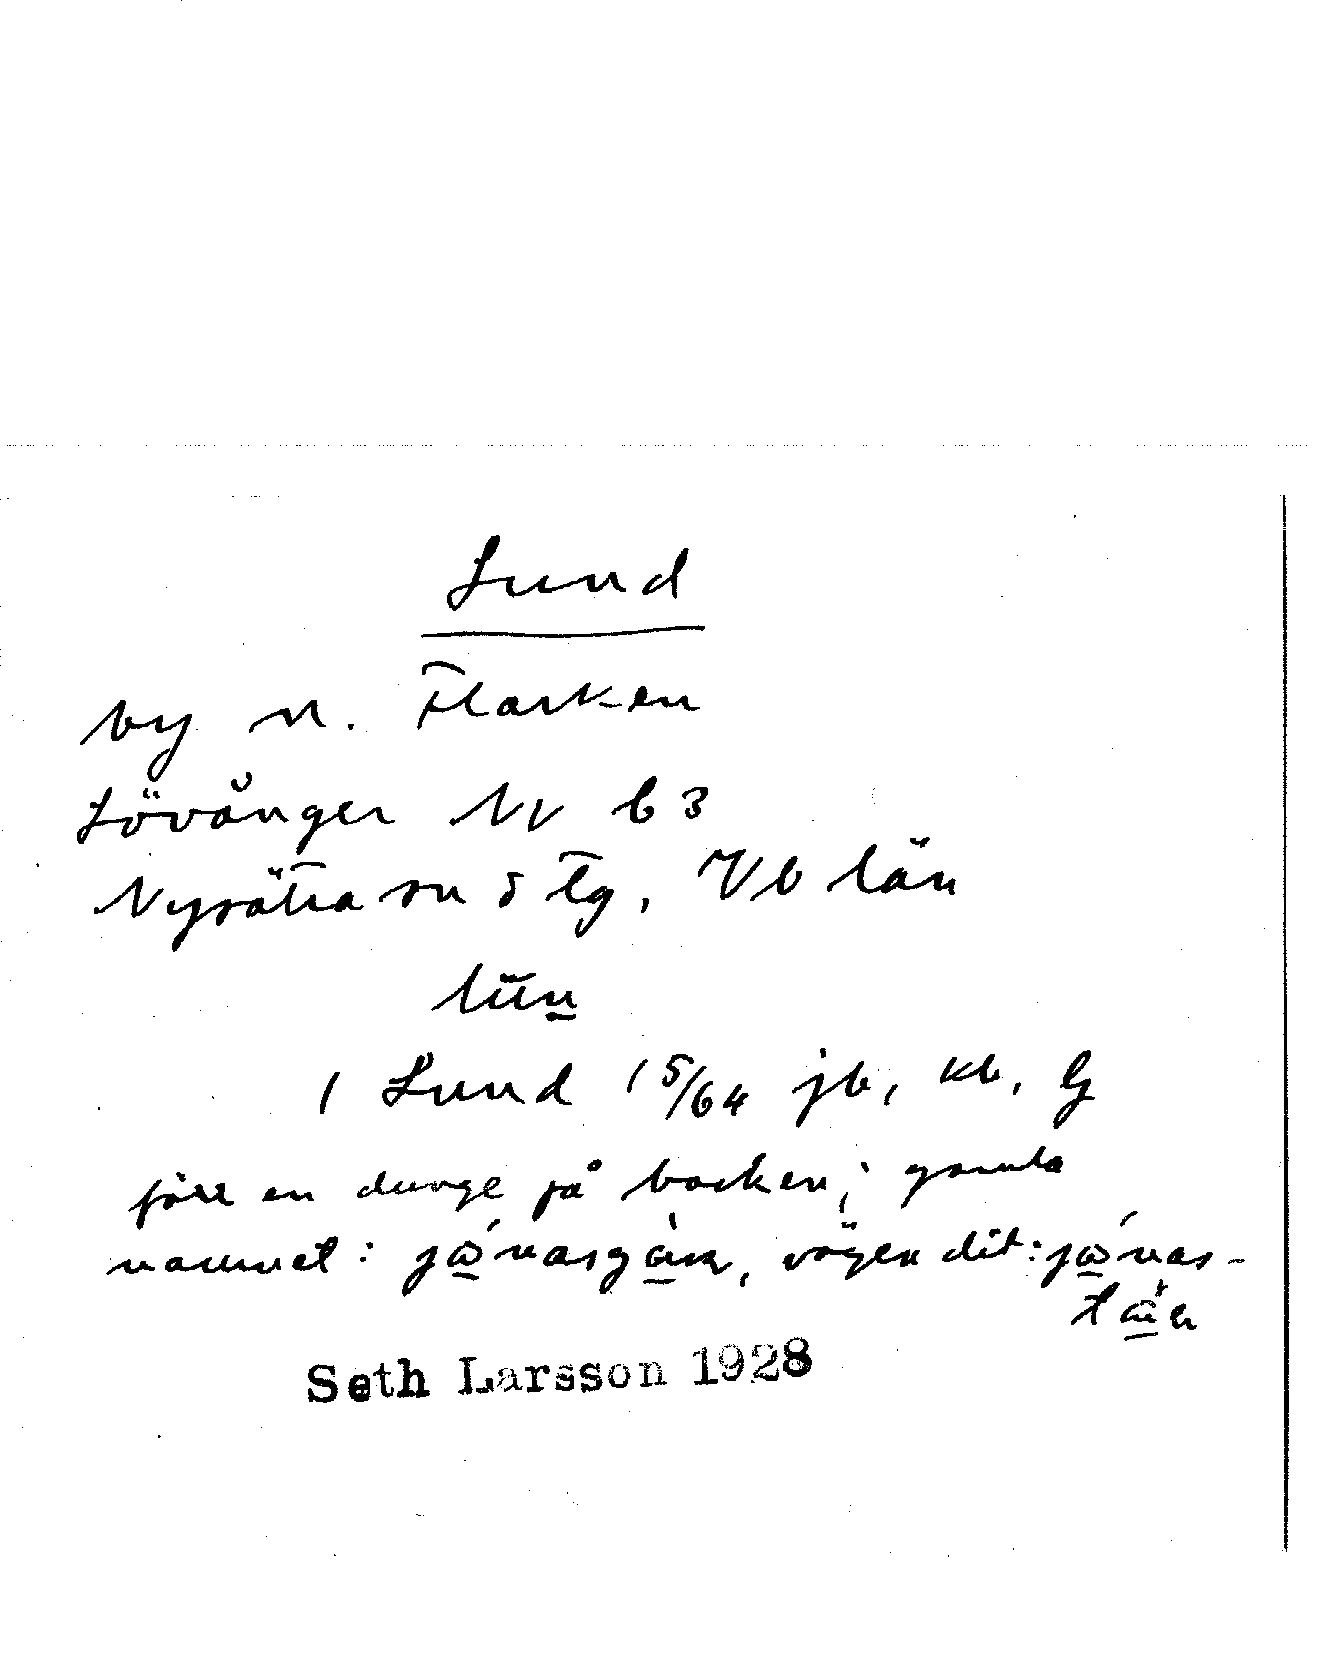 Lund
by n. Flarken
Lövånger NV b 3
Nysätra sn o tg, Vb län
1 Lund 15/64 jb, kb, G
förr en dunge på backen; gamla
namnet: vägen dit:
Seth Larsson 1928